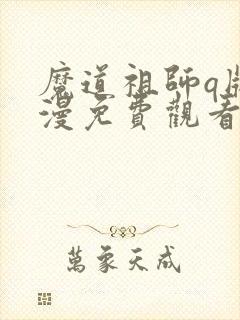 魔道祖師q版
漫免費觀看
萬象天成